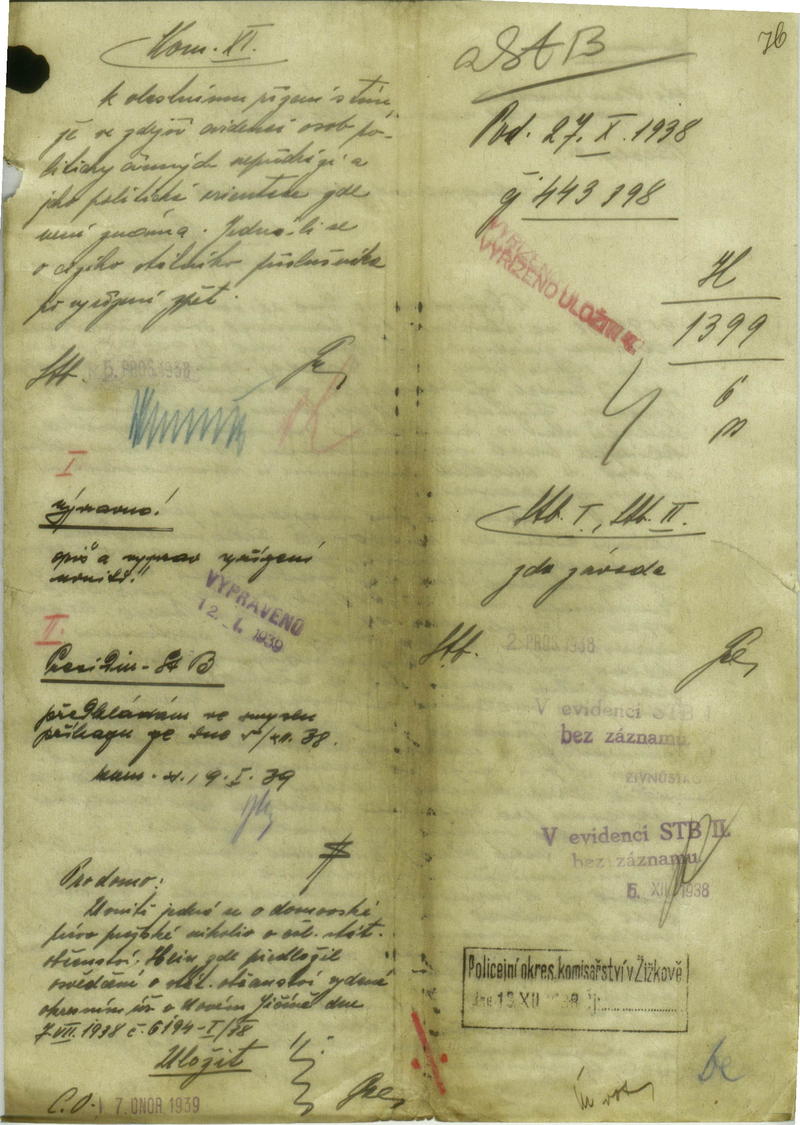 Kom. XI.
K vlastnímu řízení s tím,
že ve zdejší evidenci osob po-
liticky činných nepřichází a
jeho politická orientace zde
není známa. Jedná-li se
o cizího státního příslušníka
po vyřízení zpět.
Stb. 5. PROS. 1938
I
výpravno!
opis a vyprav vyřízení
uvnitř!
VYPRAVENO
12. I. 1939
II.
Presidiu - St B
předkládám ve smyslu
příkazu ze dne 5/XII. 38.
kom. XI., 9. I. 39
Pro domo:
Uvnitř jedná se o domovské
právo pražské nikoliv o čsl. stát.
občanství. Hein zde předložil
osvědčení o stát. občanství vydané
okresním úř. v Novém Jičíně dne
7. VII. 1938 č 6194-I/38
Uložit
C. O. 7. ÚNOR 1939
76
StB
Pod. 27. X. 1938
čj 443198
VYŘÍZENO ULOŽIT
H
1399
6
Stb. I., Stb. II.
zda závada
Stb. 2. PROS. 1938
V evidenci STB I
bez záznamu.
ŽIVNOST
V evidenci STB II.
bez záznamu
5. XII. 1938
Policejní okres. komisařství v Žižkově
dne 13 XII 1938 čj: